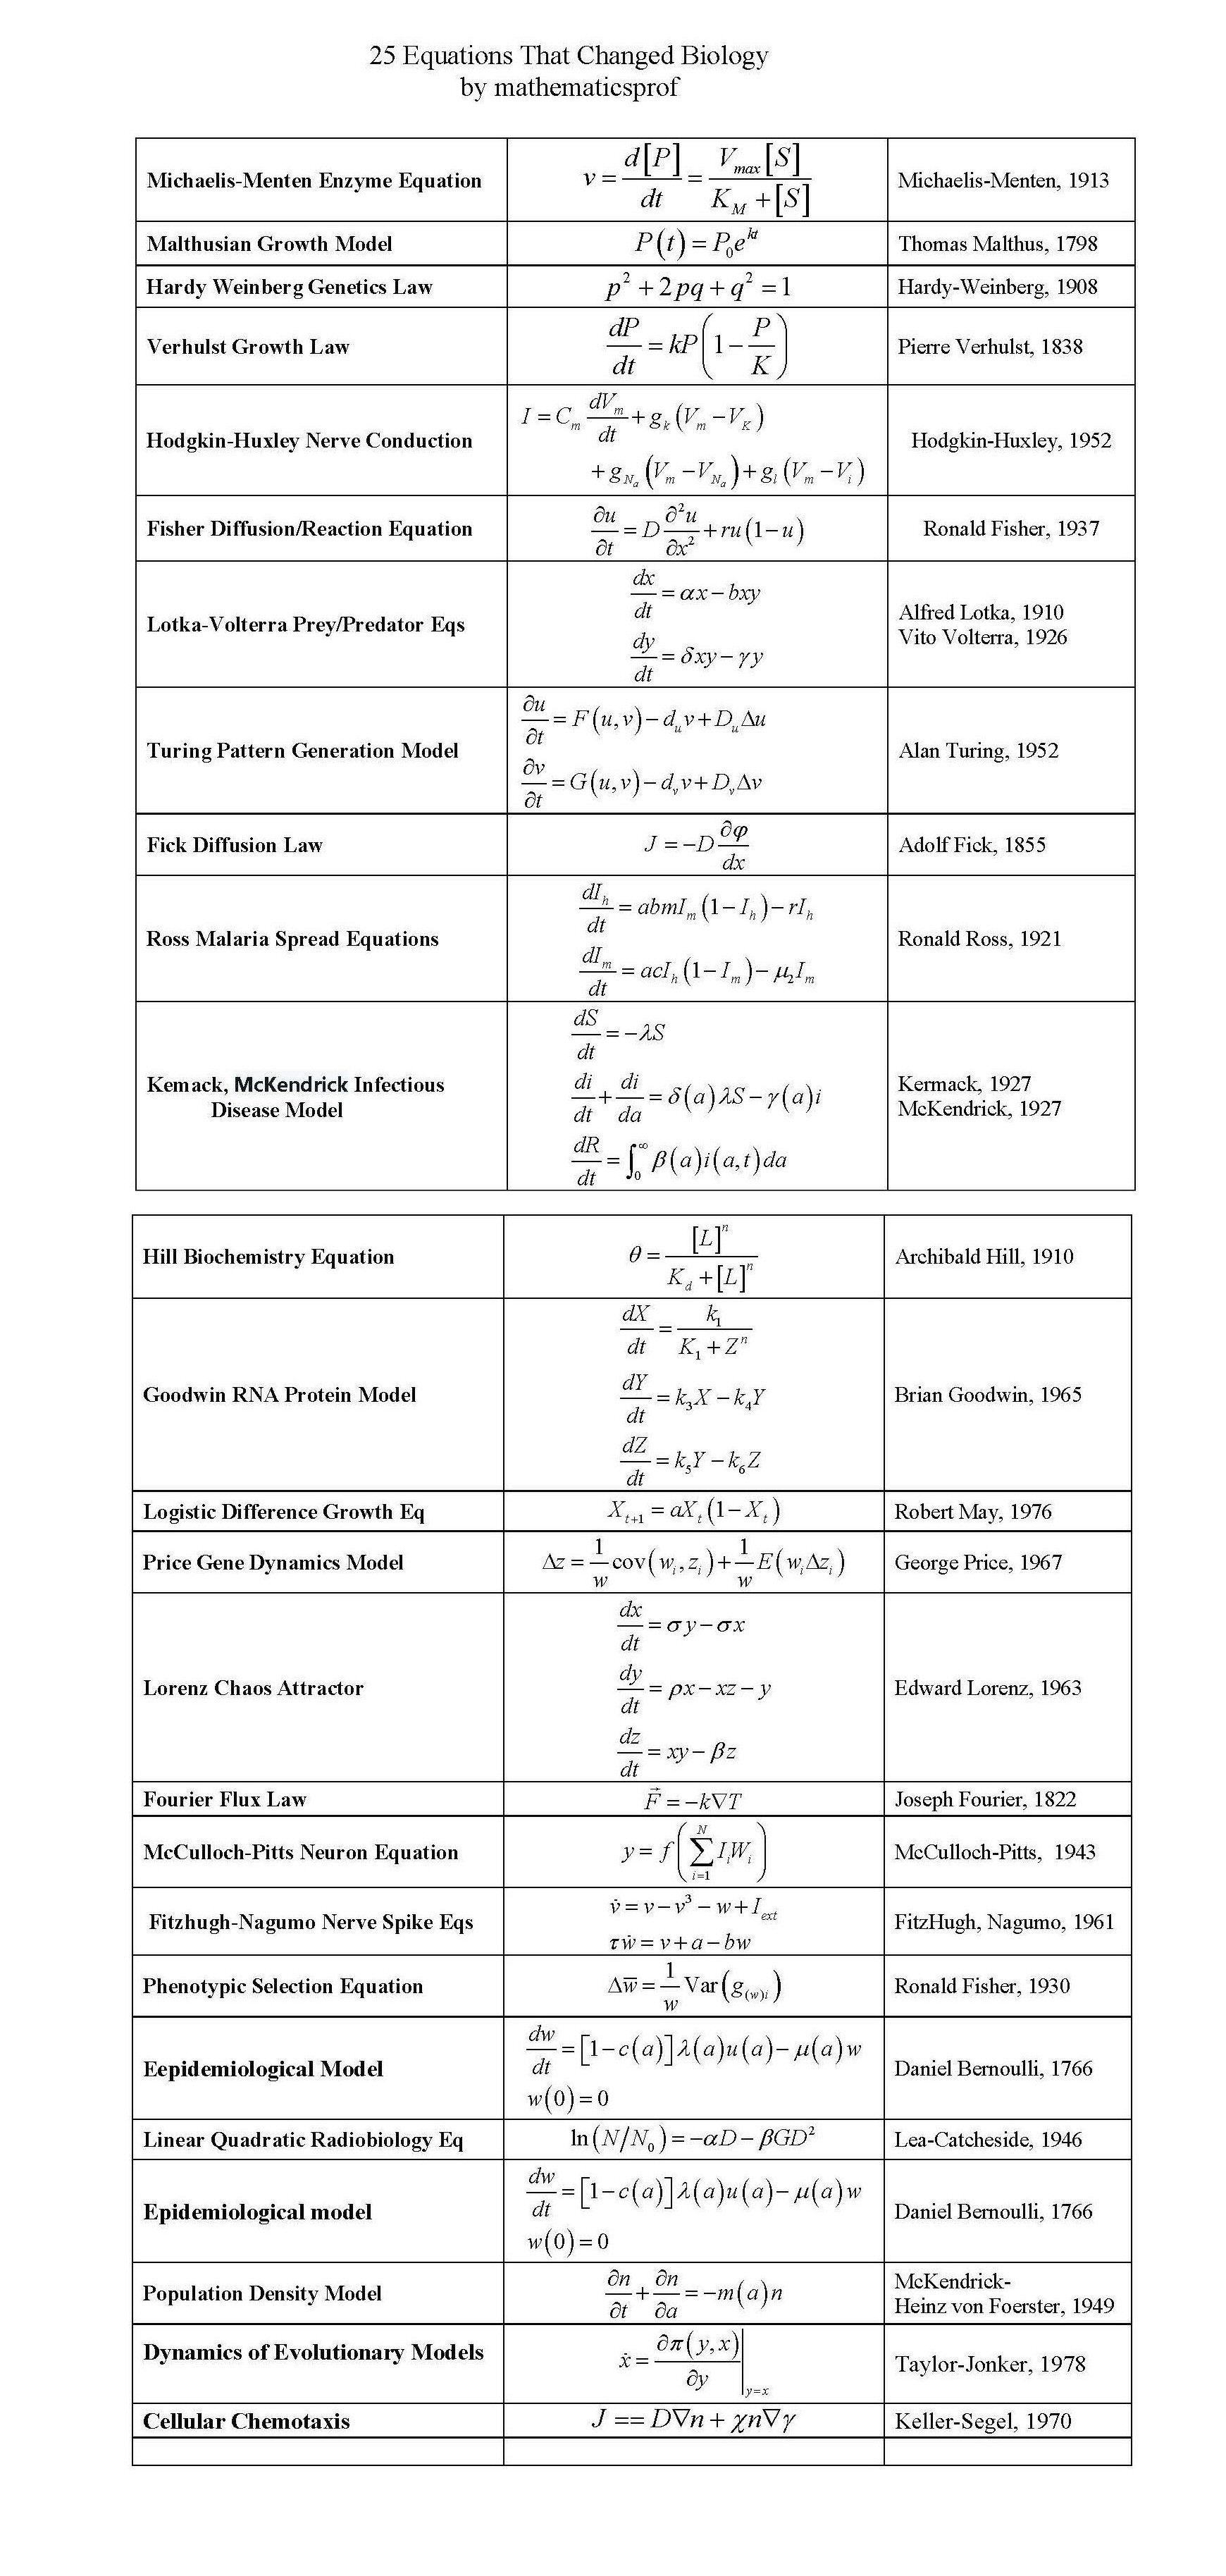 25 Equations That Changed Biology
by mathematicsprof
Michaelis-Menten Enzyme Equation
v = d[P]/dt = V_max[S]/(K_M + [S])
Michaelis-Menten, 1913
Malthusian Growth Model
P(t) = P₀e^{kt}
Thomas Malthus, 1798
Hardy Weinberg Genetics Law
p² + 2pq + q² = 1
Hardy-Weinberg, 1908
Verhulst Growth Law
dP/dt = kP(1 − P/K)
Pierre Verhulst, 1838
Hodgkin-Huxley Nerve Conduction
I = C_m dV_m/dt + g_k(V_m − V_K)
+ g_{N_a}(V_m − V_{N_a}) + g_l(V_m − V_i)
Hodgkin-Huxley, 1952
Fisher Diffusion/Reaction Equation
∂u/∂t = D ∂²u/∂x² + ru(1 − u)
Ronald Fisher, 1937
Lotka-Volterra Prey/Predator Eqs
dx/dt = αx − bxy
dy/dt = δxy − γy
Alfred Lotka, 1910
Vito Volterra, 1926
Turing Pattern Generation Model
∂u/∂t = F(u,v) − d_u v + D_u Δu
∂v/∂t = G(u,v) − d_v v + D_v Δv
Alan Turing, 1952
Fick Diffusion Law
J = −D ∂φ/dx
Adolf Fick, 1855
Ross Malaria Spread Equations
dI_h/dt = abmI_m(1 − I_h) − rI_h
dI_m/dt = acI_h(1 − I_m) − μ₂I_m
Ronald Ross, 1921
Kemack, McKendrick Infectious
Disease Model
dS/dt = −λS
di/dt + di/da = δ(a)λS − γ(a)i
dR/dt = ∫₀^∞ β(a)i(a,t)da
Kermack, 1927
McKendrick, 1927
Hill Biochemistry Equation
θ = [L]^n/(K_d + [L]^n)
Archibald Hill, 1910
Goodwin RNA Protein Model
dX/dt = k₁/(K₁ + Z^n)
dY/dt = k₃X − k₄Y
dZ/dt = k₅Y − k₆Z
Brian Goodwin, 1965
Logistic Difference Growth Eq
X_{t+1} = aX_t(1 − X_t)
Robert May, 1976
Price Gene Dynamics Model
Δz = 1/w cov(w_i, z_i) + 1/w E(w_i Δz_i)
George Price, 1967
Lorenz Chaos Attractor
dx/dt = σy − σx
dy/dt = ρx − xz − y
dz/dt = xy − βz
Edward Lorenz, 1963
Fourier Flux Law
F⃗ = −k∇T
Joseph Fourier, 1822
McCulloch-Pitts Neuron Equation
y = f(∑_{i=1}^{N} I_i W_i)
McCulloch-Pitts, 1943
Fitzhugh-Nagumo Nerve Spike Eqs
v̇ = v − v³ − w + I_ext
τẇ = v + a − bw
FitzHugh, Nagumo, 1961
Phenotypic Selection Equation
Δw̅ = 1/w Var(g_{(w)i})
Ronald Fisher, 1930
Eepidemiological Model
dw/dt = [1 − c(a)]λ(a)u(a) − μ(a)w
w(0) = 0
Daniel Bernoulli, 1766
Linear Quadratic Radiobiology Eq
ln(N/N₀) = −αD − βGD²
Lea-Catcheside, 1946
Epidemiological model
dw/dt = [1 − c(a)]λ(a)u(a) − μ(a)w
w(0) = 0
Daniel Bernoulli, 1766
Population Density Model
∂n/∂t + ∂n/∂a = −m(a)n
McKendrick-
Heinz von Foerster, 1949
Dynamics of Evolutionary Models
ẋ = ∂π(y,x)/∂y |_{y=x}
Taylor-Jonker, 1978
Cellular Chemotaxis
J == D∇n + χn∇γ
Keller-Segel, 1970